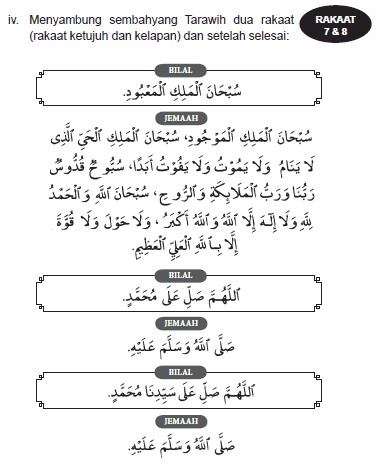 iv. Menyambung sembahyang Tarawih dua rakaat
(rakaat ketujuh dan kelapan) dan setelah selesai:
RAKAAT
7 & 8
BILAL
سُبْحَانَ ٱلْمَلِكِ ٱلْمَعْبُودِ.
JEMAAH
سُبْحَانَ ٱلْمَلِكِ ٱلْمَوْجُودِ، سُبْحَانَ ٱلْمَلِكِ ٱلْحَيِّ ٱلَّذِى
لَا يَنَامُ وَلَا يَمُوْتُ وَلَا يَفُوْتُ أَبَدًا، سُبُّوحٌ قُدُّوسٌ
رَبُّنَا وَرَبُّ ٱلْمَلَابِٕكَةِ وَٱلرُّوحِ، سُبْحَانَ ٱللَّهِ وَٱلْحَمْدُ
لِلَّهِ وَلَا إِلَـٰهَ إِلَّا ٱللَّهُ وَٱللَّهُ أَكْبَرُ، وَلَا حَوْلَ وَلَا قُوَّةَ
إِلَّا بِٱللَّهِ ٱلْعَلِيِّ ٱلْعَظِيمِ.
BILAL
ٱللَّهُمَّ صَلِّ عَلَى مُحَمَّدٍ.
JEMAAH
صَلَّى ٱللَّهُ وَسَلَّمَ عَلَيْهِ.
BILAL
ٱللَّهُمَّ صَلِّ عَلَى سَيِّدِنَا مُحَمَّدٍ.
JEMAAH
صَلَّى ٱللَّهُ وَسَلَّمَ عَلَيْهِ.